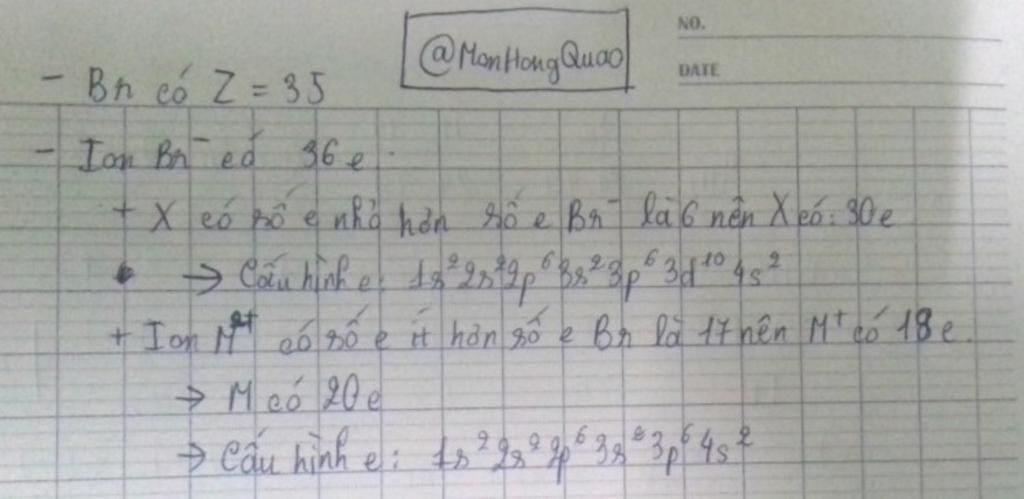 @MonHongQuao
NO.
DATE
- Br có Z = 35
- Ion Br⁻ có 36e.
+ X có số e nhỏ hơn số e Br⁻ là 6 nên X có: 30e
→ Cấu hình e: 1s²2s²2p⁶3s²3p⁶3d¹⁰4s²
+ Ion M²⁺ có số e ít hơn số e Br là 17 nên M⁺ có 18e.
→ M có 20e
→ Cấu hình e: 1s²2s²2p⁶3s²3p⁶4s²